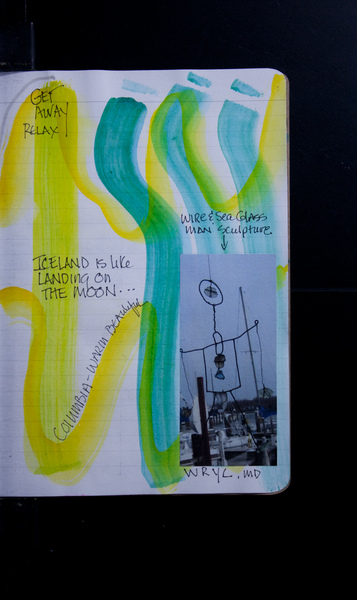 GET
AWAY
RELAX
WIRE & Sea Glass
MAN Sculpture
ICELAND is like
LANDING ON
THE MOON...
COLUMBIA - WARM Beautiful
WRYC, MD